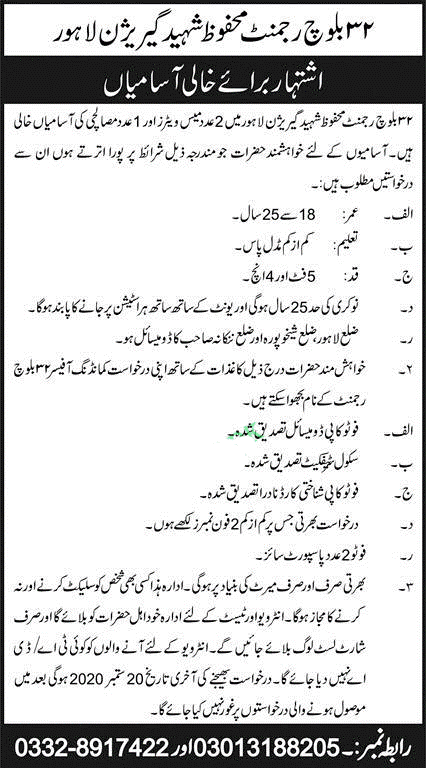 ۳۲ بلوچ رجمنٹ محفوظ شہید گیریژن لاہور
اشتہار برائے خالی آسامیاں
۳۲ بلوچ رجمنٹ محفوظ شہید گیریژن لاہور میں 2 عدد میس ویٹرز اور 1 عدد مصالچی کی آسامیاں خالی
ہیں۔ آسامیوں کے لئے خواہشمند حضرات جو مندرجہ ذیل شرائط پر پورا اترتے ہوں ان سے
درخواستیں مطلوب ہیں:۔
الف۔ عمر: 18 سے 25 سال۔
ب۔ تعلیم: کم از کم مڈل پاس۔
ج۔ قد: 5 فٹ اور 4 انچ۔
د۔ نوکری کی حد 25 سال ہوگی اور یونٹ کے ساتھ ساتھ ہر اسٹیشن پر جانے کا پابند ہوگا۔
ر۔ ضلع لاہور، ضلع شیخوپورہ اور ضلع ننکانہ صاحب کا ڈومیسائل ہو۔
۲۔ خواہش مند حضرات درج ذیل کاغذات کے ساتھ اپنی درخواست کمانڈنگ آفیسر ۳۲ بلوچ
رجمنٹ کے نام بھجوا سکتے ہیں۔
الف۔ فوٹو کاپی ڈومیسائل تصدیق شدہ۔
ب۔ سکول سرٹیفکیٹ تصدیق شدہ۔
ج۔ فوٹو کاپی شناختی کارڈ نادرا تصدیق شدہ۔
د۔ درخواست بھرتی جس پر کم از کم 2 فون نمبرز لکھے ہوں۔
ر۔ فوٹو 2 عدد پاسپورٹ سائز۔
۳۔ بھرتی صرف اور صرف میرٹ کی بنیاد پر ہوگی۔ ادارہ ہذا کسی بھی شخص کو سلیکٹ کرنے اور نہ
کرنے کا مجاز ہوگا۔ انٹرویو اور ٹیسٹ کے لئے ادارہ خود اہل حضرات کو بلائے گا اور صرف
شارٹ لسٹ لوگ بلائے جائیں گے۔ انٹرویو کے لئے آنے والوں کو کوئی ٹی اے/ ڈی
اے نہیں دیا جائے گا۔ درخواست بھیجنے کی آخری تاریخ 20 ستمبر 2020 ہوگی بعد میں
موصول ہونے والی درخواستوں پر غور نہیں کیا جائے گا۔
رابطہ نمبر:۔ 03013188205 اور 0332-8917422